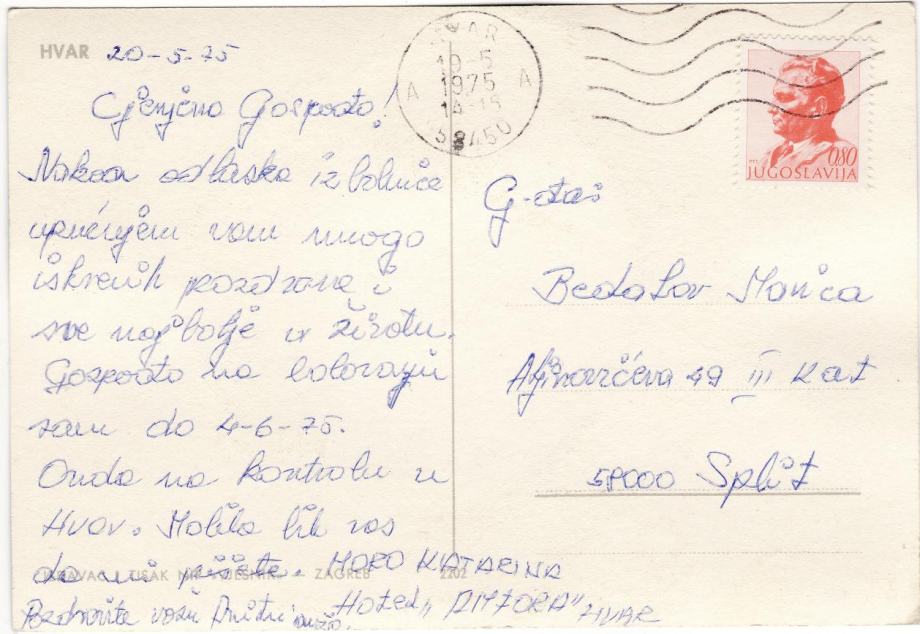 HVAR 20-5-75
Cjenjena Gospođo!
Nakon odlaska iz bolnice
upućujem vam mnogo
iskrenih pozdrava i
sve najbolje u životu.
Gospođo na bolovanju
sam do 4-6-75.
Onda na kontrolu u
Hvar. Molila bih vas
da mi pišete. MORO KATARINA
Pozdravite vašu
Hotel "AMFORA" HVAR
IZDAVAČ I TISAK NIP "VJESNIK" – ZAGREB 2202
HVAR
-5
1975
14-15
A A
58450
0,80
JUGOSLAVIJA
G-đa
Bedalov Marica
Aljinovićeva 49 III Kat
58000 Split